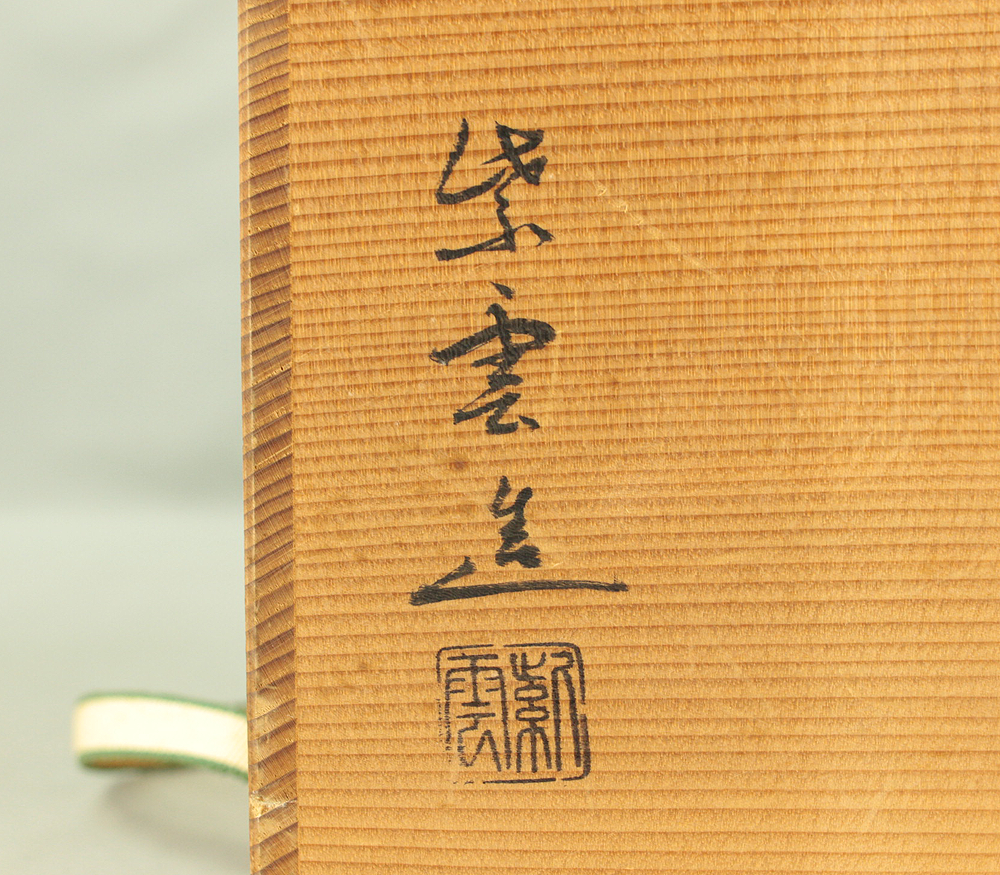 紫雲造
紫雲